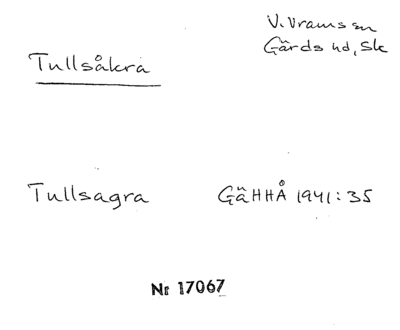 V. Vrams sn
Gärds hd, Sk
Tullsåkra
Tullsagra GäHHÅ 1941:35
Nr 17067